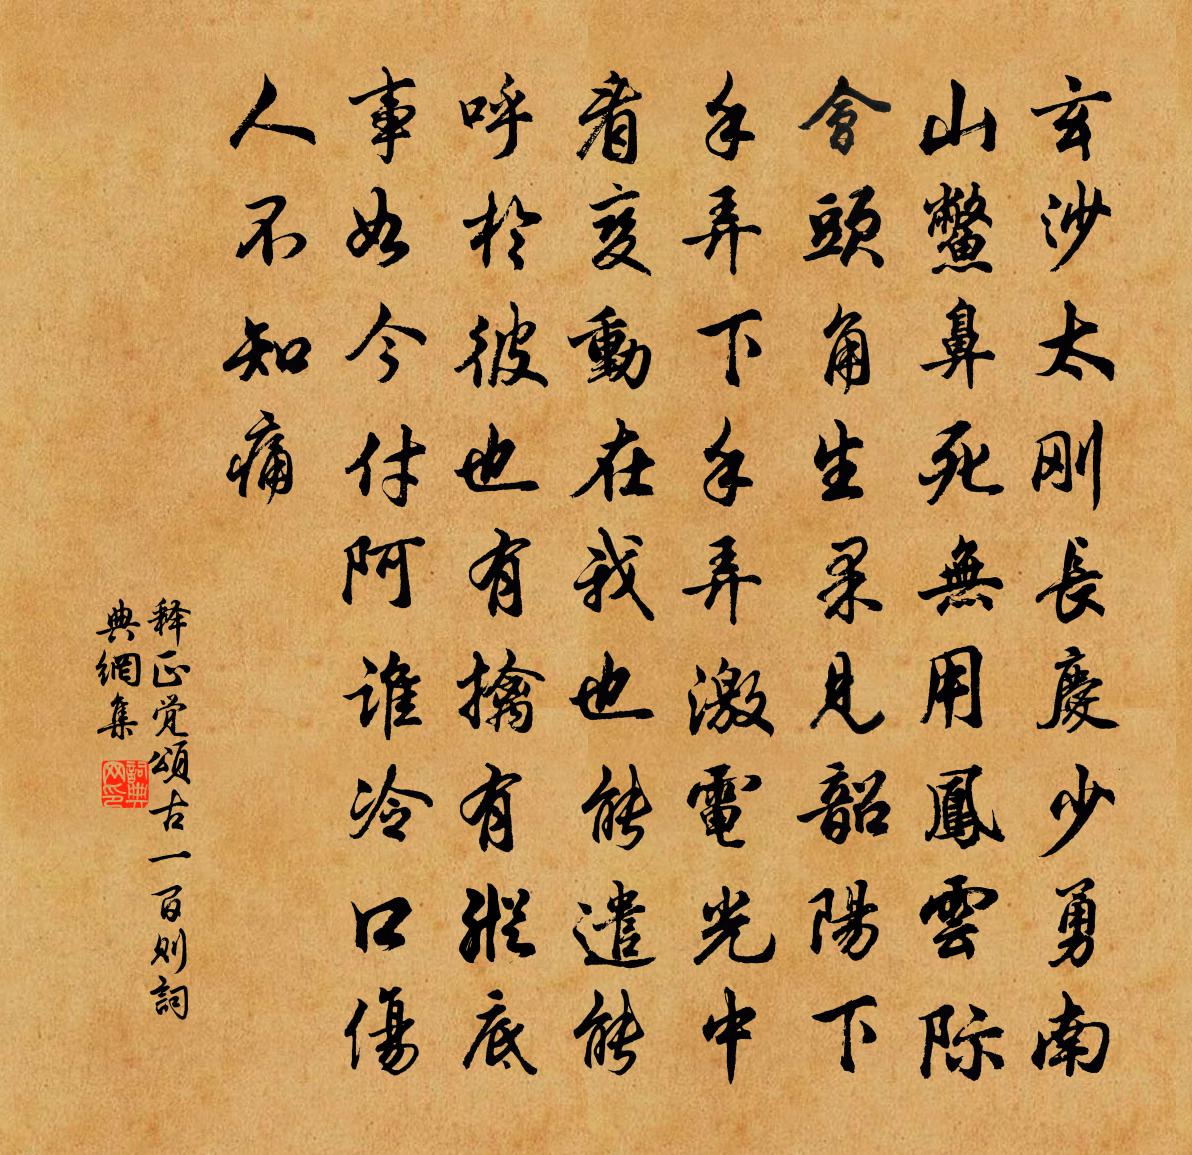 玄沙太刚長慶少勇南
山鱉鼻死無用鳳雲际
會頭角生果見韶陽下
手弄下手弄激電光中
看变動在我也能遣能
呼於彼也有擒有縱底
事如今付阿谁冷口傷
人不知痛
释正觉頌古一百则詞
典網集
詞典网印